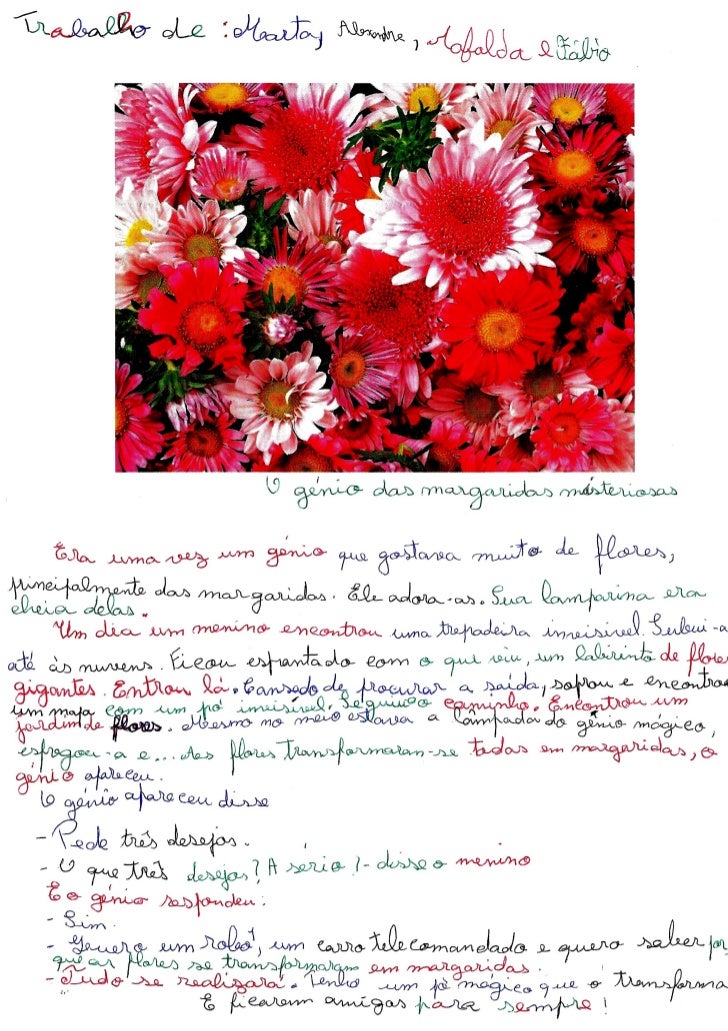 Trabalho de : Marta, Alexandre, Mafalda e Fábio
O génio das margaridas misteriosas
Era uma vez um génio que gostava muito de flores,
principalmente das margaridas. Ele adora-as. Sua lamparina era
cheia delas.
Um dia um menino encontrou uma trepadeira invisível. Subui-a
até às nuvens. Ficou espantado com o que viu, um labirinto de flores
gigantes. Entrou lá. Cansado de procurar a saída, soprou e encontrou
um mapa com um pó invisível. Seguiu o caminho. Encontrou um
jardim de flores. Mesmo no meio estava a lâmpada do génio mágico,
esfregou-a e... das flores transformaram-se todas em margaridas, o
génio apareceu.
O génio apareceu disse
- Pede três desejos.
- O que três desejos? A sério!- disse o menino
E o génio respondeu:
- Sim.
- Quero um robô, um carro telecomandado e quero saber por
que as flores se transformaram em margaridas.
- Tudo se realizará. Tenho um pó magico que o transforma
E ficarem amigas para sempre!